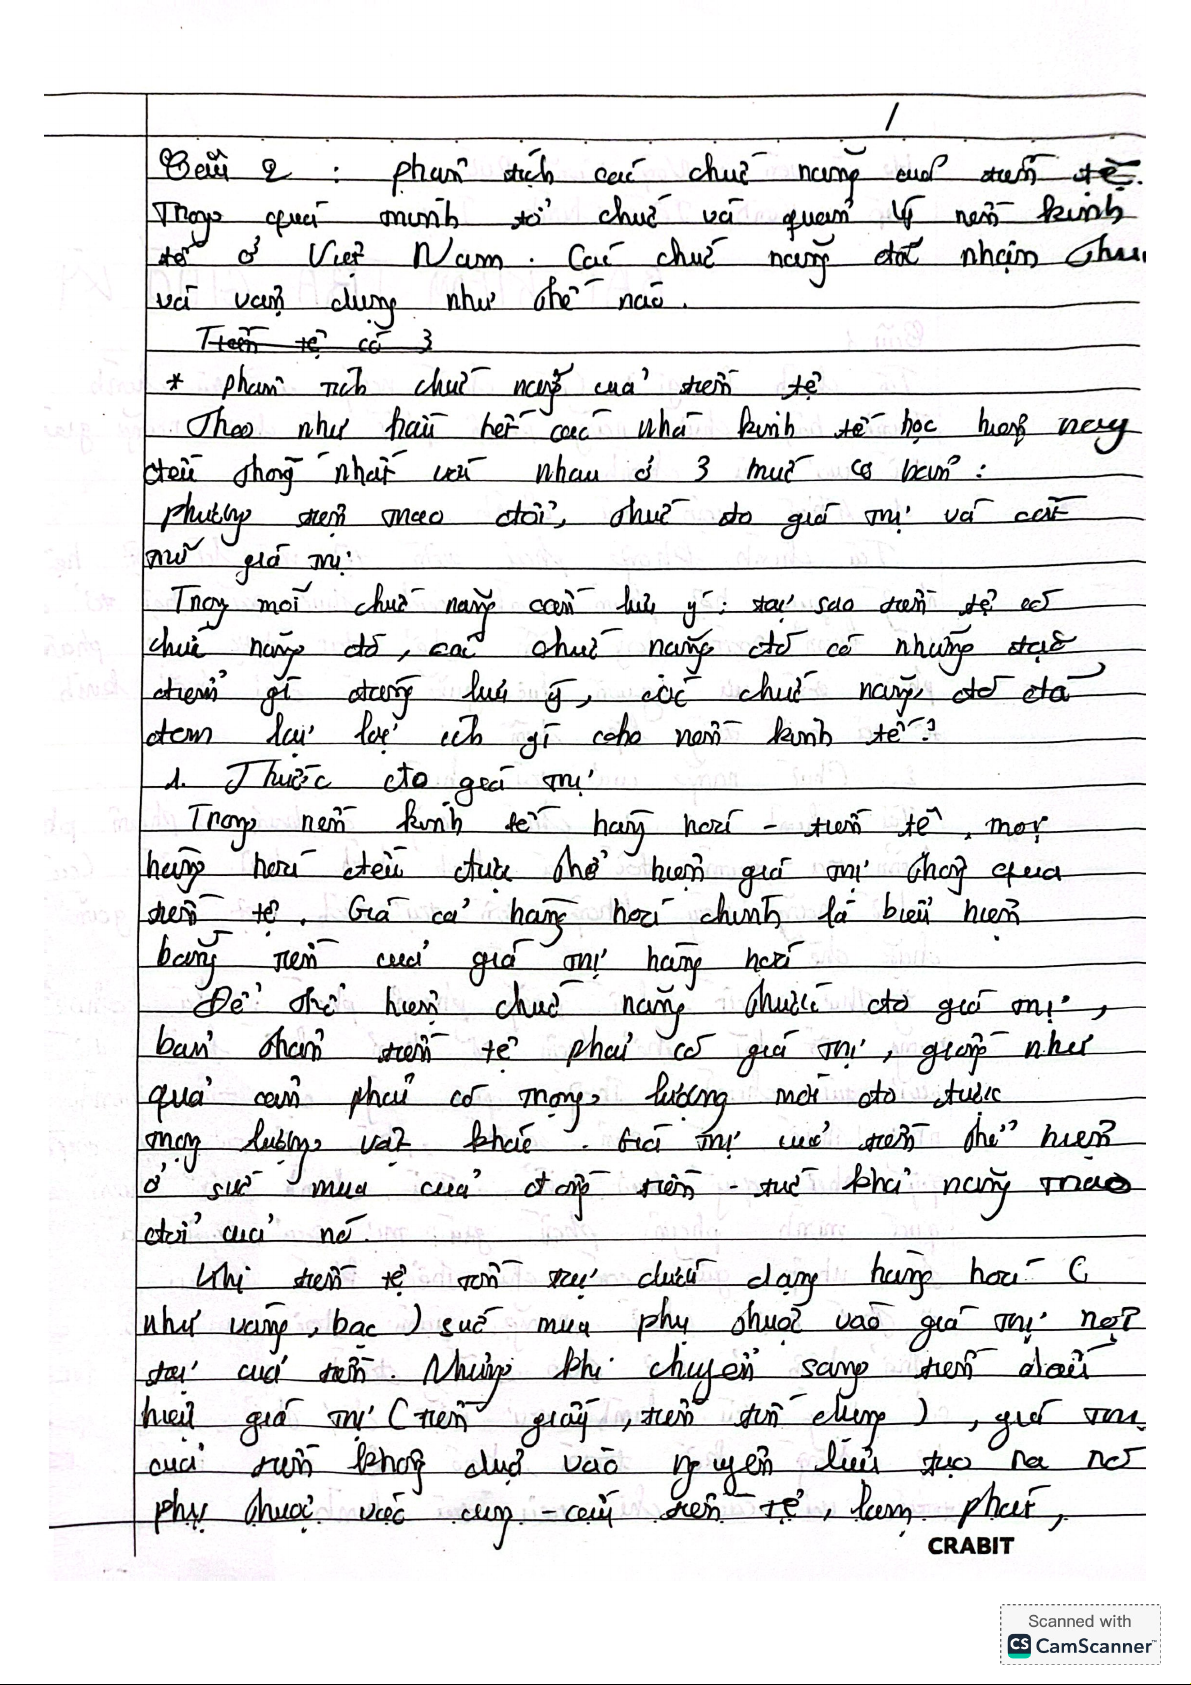 1
Câu 2 : phân tích các chức năng của tiền tệ.
Trong quá trình tổ chức và quản lý nền kinh
tế ở Việt Nam. Các chức năng đó nhận thức
và vận dụng như thế nào.
Tiền tệ có 3
* phân tích chức năng của tiền tệ
Theo như hầu hết các nhà kinh tế học hiện nay
đều thống nhất với nhau ở 3 mức cơ bản :
phương tiện trao đổi, thước đo giá trị và cất
trữ giá trị
Trong mỗi chức năng cần lưu ý : tại sao tiền tệ có
chức năng đó, các chức năng đó có những đặc
điểm gì đáng lưu ý, các chức năng đó đã
đem lại lợi ích gì cho nền kinh tế ?
1. Thước đo giá trị
Trong nền kinh tế hàng hoá - tiền tệ, mọi
hàng hoá đều được thể hiện giá trị thông qua
tiền tệ. Giá cả hàng hoá chính là biểu hiện
bằng tiền của giá trị hàng hoá
Để thể hiện chức năng thước đo giá trị,
bản thân tiền tệ phải có giá trị, giống như
quả cân phải có trọng lượng mới đo được
trọng lượng vật khác. Giá trị của tiền thể hiện
ở sức mua của đồng tiền - tức khả năng trao
đổi của nó.
Khi tiền tệ tồn tại dưới dạng hàng hoá (
như vàng, bạc ) sức mua phụ thuộc vào giá trị nội
tại của tiền. Nhưng khi chuyển sang tiền dấu
hiệu giá trị ( tiền giấy, tiền tín dụng ), giá trị
của tiền không dựa vào nguyên liệu tạo ra nó
phụ thuộc vào cung - cầu tiền tệ, lạm phát,
CRABIT
Scanned with
CS CamScanner